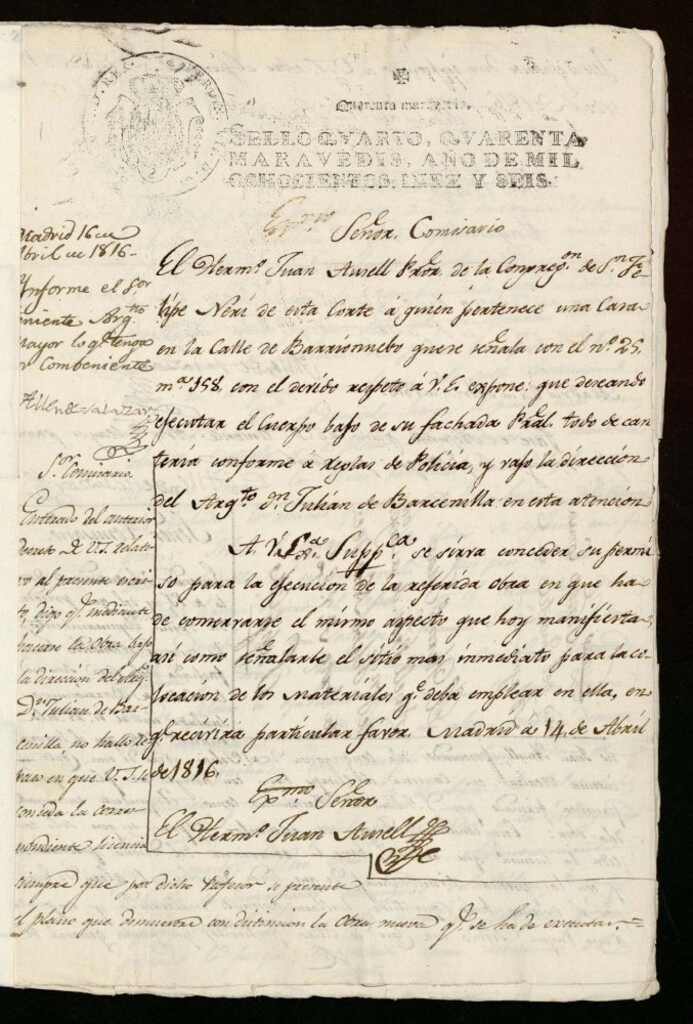 Quarenta maravedis.
SELLO QVARTO, QVARENTA
MARAVEDIS, AÑO DE MIL
OCHOCIENTOS DIEZ Y SEIS.
Exmo
Señor. Comisario
El Hermº. Juan Aurell Pror. de la Congregon. de Sn. Fe
lipe Neri de esta Corte á quien pertenece una Casa
en la Calle de Barrionuebo que se señala con el nº. 25.
mna. 158. con el devido respeto á V. E. expone: que deseando
ejecutar el Cuerpo bajo de su fachada Pral. todo de can
teria conforme á reglas de Policia, y vajo la direccion
del Arqto. dn. Julian de Barcenilla: en esta atencion
A V. Suppca. se sirva conceder su permi
so para la ejecucion de la referida obra en que ha
de conservarse el mismo aspecto que hoy manifiesta,
asi como señalarle el sitio mas inmediato para la co
locacion de los Materiales q. deba emplear en ella, en
q. recivirá particular favor. Madrid á 14. de Abril
de 1816.
Exmo Señor
El Hermº. Juan Aurell
Madrid 16 de
Abril de 1816.
Informe el Sor
Teniente Arqto
mayor lo q. tenga
Combeniente
Allendesalazar
Sor. Comisario.
Enterado del anterior
decreto de V.I. relati
vo al presente escri
to, digo q. mediante
hacerse la Obra bajo
la direccion del Arq.
Dn. Julian de Bar
cenilla, no hallo re
paro en que V. I. le
conceda la corres
pondiente licencia
siempre que por dicho Profesor se presente
el plano que demuestre con distincion la Obra nueva q. se ha de executar.=